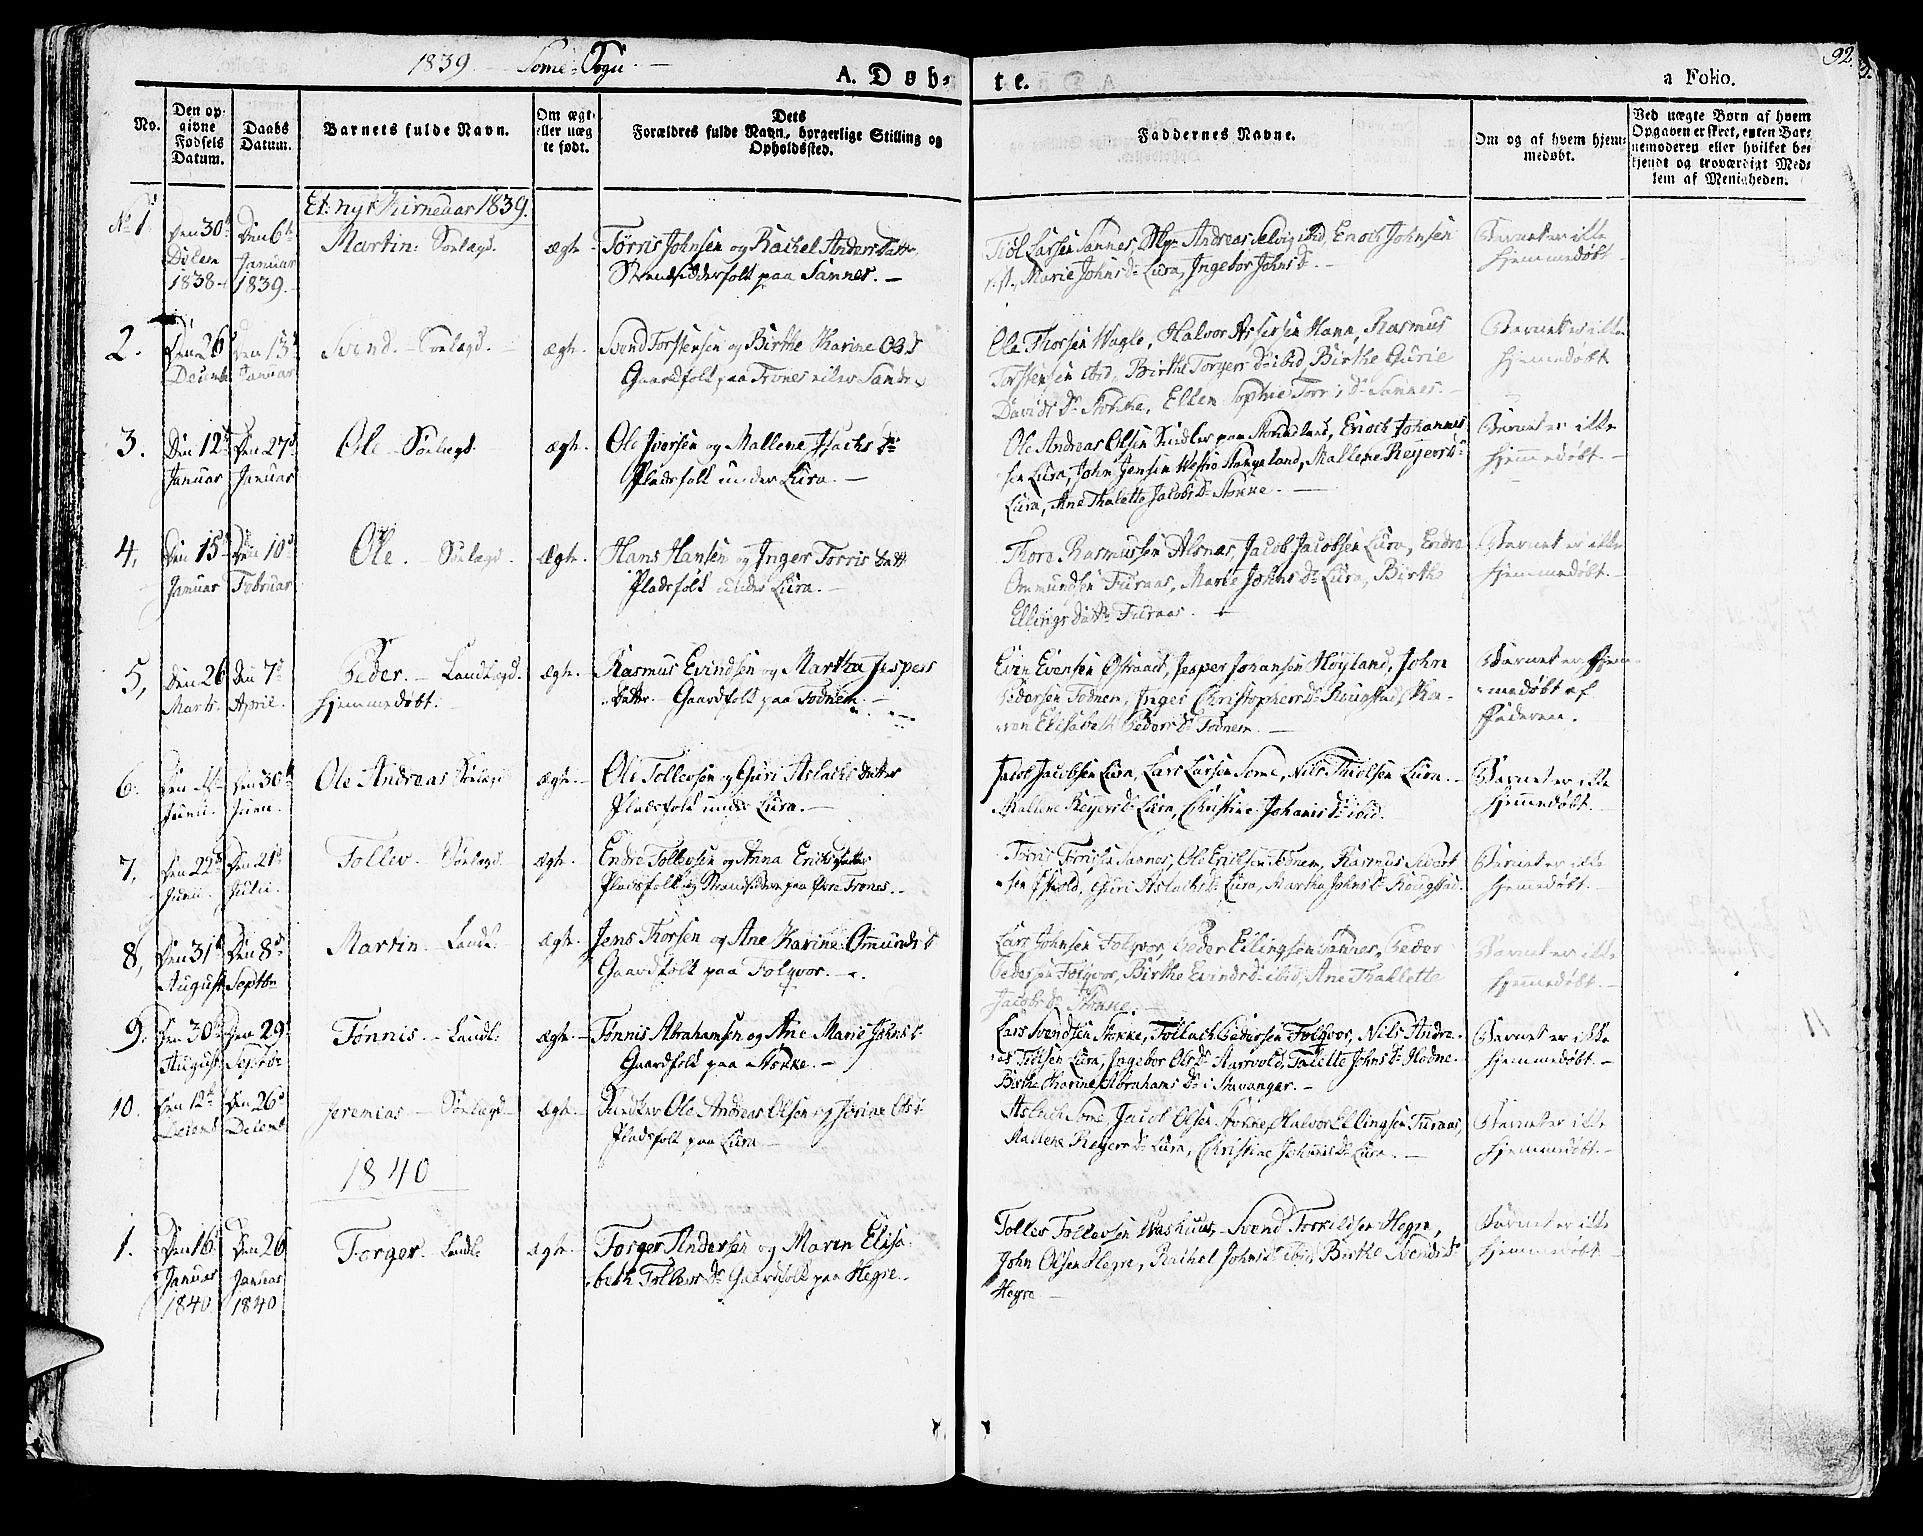 1839 — Some Sogn. —
A. Døb-
te.
a Folio.
92.
No.
Den op-
givne
Fødsels
Datum.
Daabs
Datum.
Barnets fulde Navn.
Om ægt-
eller uæg
te født.
Dets
Forældres fulde Navn, borgerlige Stilling og
Opholdssted.
Faddernes Navne.
Om og af hvem hjem-
medøbt.
Ved uægte Børn af hvem
Opgaven er skeet, enten Bar-
nemoderen eller hvilket be-
kjendt og troværdigt Med-
lem af Menigheden.
Et nyt Kirkeaar 1839.
No 1
Den 30t
1838
Den 6te
Januar
1839.
Martin. Sønlagd.
ægte
Tørris Johnsen og Rachel Anders Datter
Strandsidderfolk paa Sannes. —
Larsen Sannes, Andreas Selvig ibid, Enoch Johnsen
Marie Johns Dr Lura, Ingebor Johns Dr. —
Barnet er ikke
hjemmedøbt
2.
Den 26
Den 13
Januar
Svend. — Sønlagd. —
ægte.
Svend Torstensen og Birthe Karine
Gaardfolk paa Trones eller
Ole Thorsen Vagle, Halvor Hann, Rasmus
Torstensen ibid, Birthe Torgers Dr ibid, Birthe Gurie
Davids Dr Stokke, Ellen Sophie Dr Sannes. —
Barnet er ikke
hjemmedøbt
3.
Den 12t
Januar
Den 27d
Januar
Ole — Sønlagd.
ægte.
Ole Iversen og Mallene Isachs Dr
Pladsfolk under Lura. —
Ole Andreas Olsen paa Enoch Johannes
sen Lura, John Jensen Vestre Stangeland, Mallene Reyers Dr
Lura, Ane Thalette Jacobs Dr Stokke. —
Barnet er ikke
hjemmedøbt —
4.
Den 15
Januar
Den 10d
Februar
Ole. — Sønlagd.
Ægte.
Hans Hansen og Inger Torris Datt
Pladsfolk under Lura. —
Thore Rasmussen Alsnæs, Jacob Jacobsen Lura, Endre
Ommundsen Furaas, Marie Johns Dr Lura, Birthe
Ellings Datter Furaas.
Barnet er ikke
hjemmedøbt. —
5,
Den 26
Marts.
Den 7d
April.
Peder. — Landlagd.
hjemmedøbt. —
ægte.
Rasmus Evindsen og Martha Jespers
Datter. — Gaardfolk paa Todnem. —
Even Evensen Østraadt, Jesper Johansen Høyland, John
Pedersen Todnem, Inger Christophers Dr Rougstad, Ka-
ren Elisabeth Peders Dr Todnem —
Barnet er hjem-
medøbt af
Faderen.
6.
Den
Junii.
Den 30t
Junii.
Ole Andreas Sønlagd
ægte. —
Ole Tollevsen og Guri Aslachs Datter
Pladsfolk under Lura. —
Jacob Jacobsen Lura, Lars Larsen Some, Nils Thiølsen Lura. —
Mallene Reyers Dr Lura, Christine Johanis Dr ibid.
Barnet er ikke
hjemmedøbt.
7,
Den 22d
Junii.
Den 21d
Julii.
Tollev. Sønlagd.
ægte.
Endre Tollevsen og Anna Erichs Datter
Pladsfolk og Strandsidere paa Øvre Trones. —
Tørris Tørrisen Sannes, Ole Erichsen Todnem, Rasmus Sivert
sen Guri Aslachs Dr Lura, Martha Johns Dr Rougstad.
Barnet er ikke
hjemmedøbt. —
8,
Den 31t
August
Den 8d
Septbr
Martin — Landl.
ægte.
Jens Thorsen og Ane Karine Omunds D
Gaardfolk paa Folqvor. —
Lars Johnsen Folqvor, Peder Ellingsen Sannes, Peder
Pedersen Folqvor, Birthe Evinds Dr ibid, Ane Thallette
Jacobs Dr Stokke.
Barnet er ikke
hjemmedøbt. —
9.
Den 30t
August
Den 29d
Septbr
Tønnis. — Landl:
ægte. —
Tønnis Abrahamsen og Ane Marie Johns D
Gaardfolk paa Stokke. —
Lars Svendsen Stokke, Tollach Pedersen Folqvor, Nils Andre-
as Lura, Ingebor Ols Dr Tallette Johns Dr
Birthe Karine Abrahams Dr i Stavanger. —
Barnet er ikke
hjemmedøbt —
10.
Den 12t
Decemb
Den 26d
Decemb
Jeremias — Sønlagd —
ægte.
Ole Andreas Olsen og Serine Ols D
Pladsfolk paa Lura —
Aslach Some Jacob Olsen Stokke, Halvor Ellingsen Furaas,
Mallene Reyers Dr Lura, Christine Johanis Dr Lura. —
Barnet er ikke
hjemmedøbt. —
1840
1.
Den 16
Januar
1840
Den 26
Januar
1840
Torger. Landl:
ægte.
Torger Andersen og Maren Elisa-
beth Tollevs Dr Gaardfolk paa Hegre.
Tollev Tollevsen Svend Torkildsen Hegre,
John Olsen Hegre, Rachel Johns Dr ibid, Birthe Svends D
Hegre —
Barnet er ikke
hjemmedøbt —